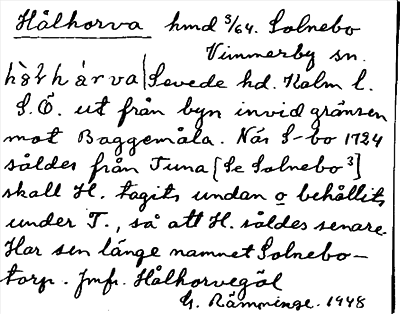 Hålhorva hmd 3/64. Solnebo
Vimmerby sn.
hò̀lhárva Sevede hd. Kalm l.
S.Ö. ut från byn invid gränsen
mot Baggemåla. När S-bo 1724
såldes från Tuna [Se Solnebo 3]
skall H. tagits undan o behållits
under T., så att H. såldes senare.
Har sen länge namnet Solnebo-
torp. Jmfr. Hålhorvegöl
G. Rämminge. 1948